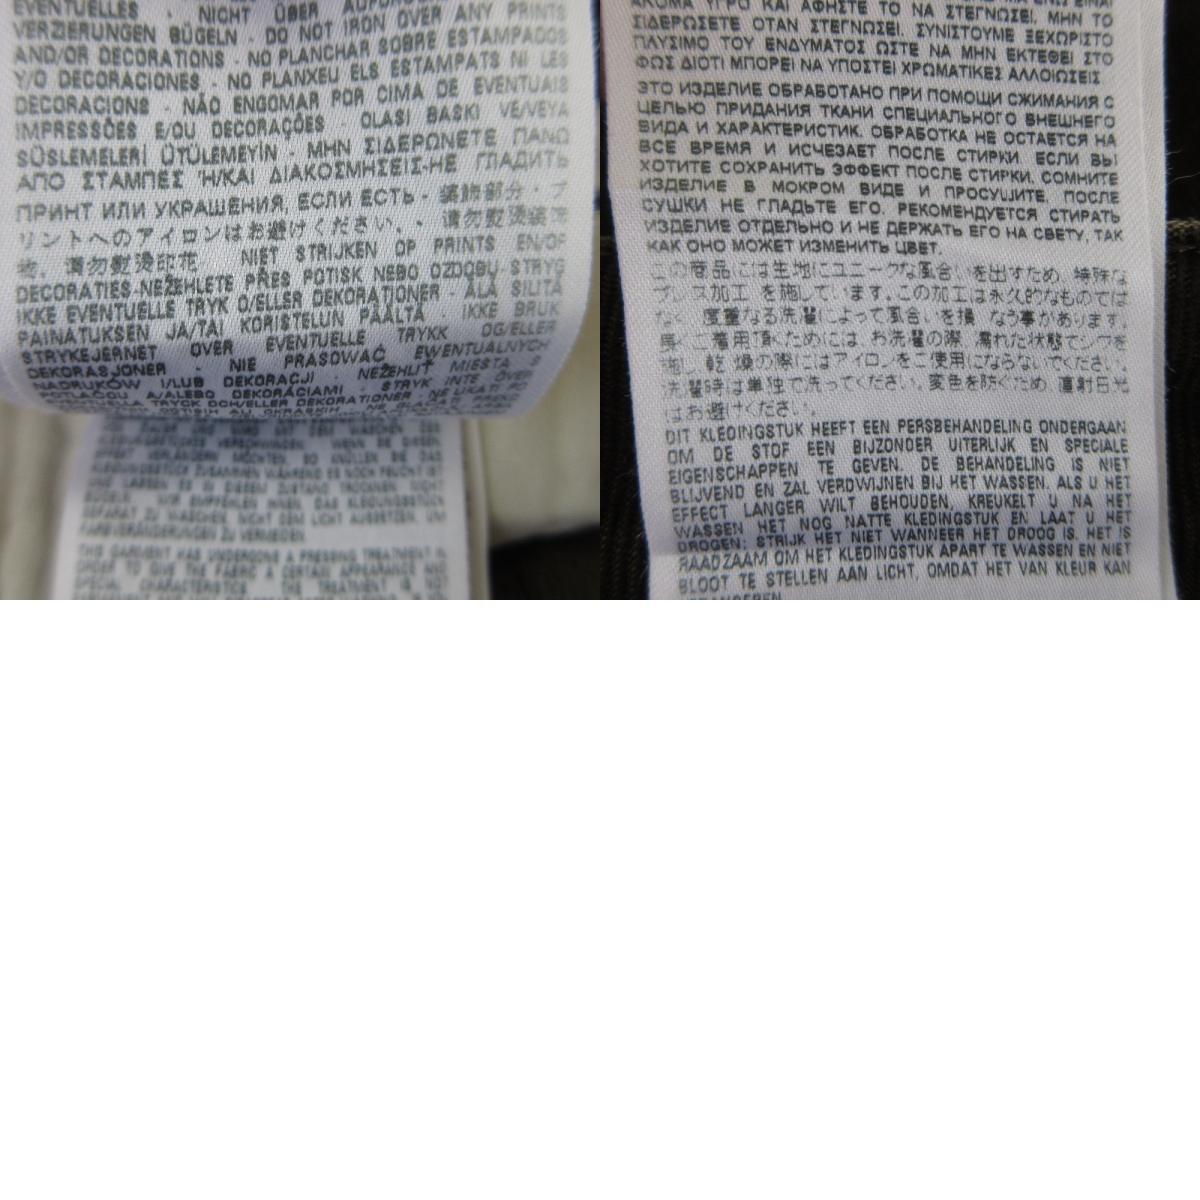 EVENTUELLES - NICHT ÜBER
VERZIERUNGEN BÜGELN - DO NOT IRON OVER ANY PRINTS
AND/OR DECORATIONS - NO PLANCHAR SOBRE ESTAMPADOS
Y/O DECORACIONES - NO PLANXEU ELS ESTAMPATS NI LES
DECORACIONS - NÃO ENGOMAR POR CIMA DE EVENTUAIS
IMPRESSÕES E/OU DECORAÇÕES - OLASI BASKI VE/VEYA
SÜSLEMELERİ ÜTÜLEMEYİN - ΜΗΝ ΣΙΔΕΡΩΝΕΤΕ ΠΑΝΩ
ΑΠΟ ΣΤΑΜΠΕΣ Ή/ΚΑΙ ΔΙΑΚΟΣΜΗΣΕΙΣ-НЕ ГЛАДИТЬ
ПРИНТ ИЛИ УКРАШЕНИЯ, ЕСЛИ ЕСТЬ - 装飾部分・プ
リントへのアイロンはお避けください。 请勿熨烫装饰
物，请勿熨烫印花 NIET STRIJKEN OP PRINTS EN/OF
DECORATIES-NEŽEHLETE PŘES POTISK NEBO OZDOBU-STRYG
IKKE EVENTUELLE TRYK O/ELLER DEKORATIONER - ÄLÄ SILITÄ
PAINATUKSEN JA/TAI KORISTELUN PÄÄLTÄ - IKKE BRUK
STRYKEJERNET OVER EVENTUELLE TRYKK OG/ELLER
DEKORASJONER - NIE PRASOWAĆ EWENTUALNYCH
NADRUKÓW I/LUB DEKORACJI - NEŽEHLIŤ MIESTA S
POTLAČOU A/ALEBO DEKORÁCIAMI - STRYK INTE ÖVER
EVENTUELLA TRYCK OCH/ELLER DEKORATIONER - NE
THIS GARMENT HAS UNDERGONE A PRESSING TREATMENT IN
ORDER TO GIVE THE FABRIC A CERTAIN APPEARANCE AND
SPECIAL CHARACTERISTICS THE TREATMENT IS NOT
ΑΚΟΜΑ ΥΓΡΟ ΚΑΙ ΑΦΗΣΤΕ ΤΟ ΝΑ ΣΤΕΓΝΩΣΕΙ. ΜΗΝ ΤΟ
ΣΙΔΕΡΩΣΕΤΕ ΟΤΑΝ ΣΤΕΓΝΩΣΕΙ. ΣΥΝΙΣΤΟΥΜΕ ΞΕΧΩΡΙΣΤΟ
ΠΛΥΣΙΜΟ ΤΟΥ ΕΝΔΥΜΑΤΟΣ ΩΣΤΕ ΝΑ ΜΗΝ ΕΚΤΕΘΕΙ ΣΤΟ
ΦΩΣ ΔΙΟΤΙ ΜΠΟΡΕΙ ΝΑ ΥΠΟΣΤΕΙ ΧΡΩΜΑΤΙΚΕΣ ΑΛΛΟΙΩΣΕΙΣ
ЭТО ИЗДЕЛИЕ ОБРАБОТАНО ПРИ ПОМОЩИ СЖИМАНИЯ С
ЦЕЛЬЮ ПРИДАНИЯ ТКАНИ СПЕЦИАЛЬНОГО ВНЕШНЕГО
ВИДА И ХАРАКТЕРИСТИК. ОБРАБОТКА НЕ ОСТАЕТСЯ НА
ВСЕ ВРЕМЯ И ИСЧЕЗАЕТ ПОСЛЕ СТИРКИ. ЕСЛИ ВЫ
ХОТИТЕ СОХРАНИТЬ ЭФФЕКТ ПОСЛЕ СТИРКИ. СОМНИТЕ
ИЗДЕЛИЕ В МОКРОМ ВИДЕ И ПРОСУШИТЕ, ПОСЛЕ
СУШКИ НЕ ГЛАДЬТЕ ЕГО. РЕКОМЕНДУЕТСЯ СТИРАТЬ
ИЗДЕЛИЕ ОТДЕЛЬНО И НЕ ДЕРЖАТЬ ЕГО НА СВЕТУ, ТАК
КАК ОНО МОЖЕТ ИЗМЕНИТЬ ЦВЕТ.
この商品には生地にユニークな風合いを出すため、特殊な
プレス加工 を施しています。この加工は永久的なものでは
なく 度重なる洗濯によって風合いを損 なう事があります。
長くご着用頂くためには お洗濯の際、濡れた状態でシワを
施し 乾 燥の際にはアイロンをご使用にならないでください。
洗濯時は単独で洗ってください。変色を防ぐため 直射日光
はお避けください。
DIT KLEDINGSTUK HEEFT EEN PERSBEHANDELING ONDERGAAN
OM DE STOF EEN BIJZONDER UITERLIJK EN SPECIALE
EIGENSCHAPPEN TE GEVEN. DE BEHANDELING IS NIET
BLIJVEND EN ZAL VERDWIJNEN BIJ HET WASSEN. ALS U HET
EFFECT LANGER WILT BEHOUDEN, KREUKELT U NA HET
WASSEN HET NOG NATTE KLEDINGSTUK EN LAAT U HET
DROGEN; STRIJK HET NIET WANNEER HET DROOG IS. HET IS
RAADZAAM OM HET KLEDINGSTUK APART TE WASSEN EN NIET
BLOOT TE STELLEN AAN LICHT, OMDAT HET VAN KLEUR KAN